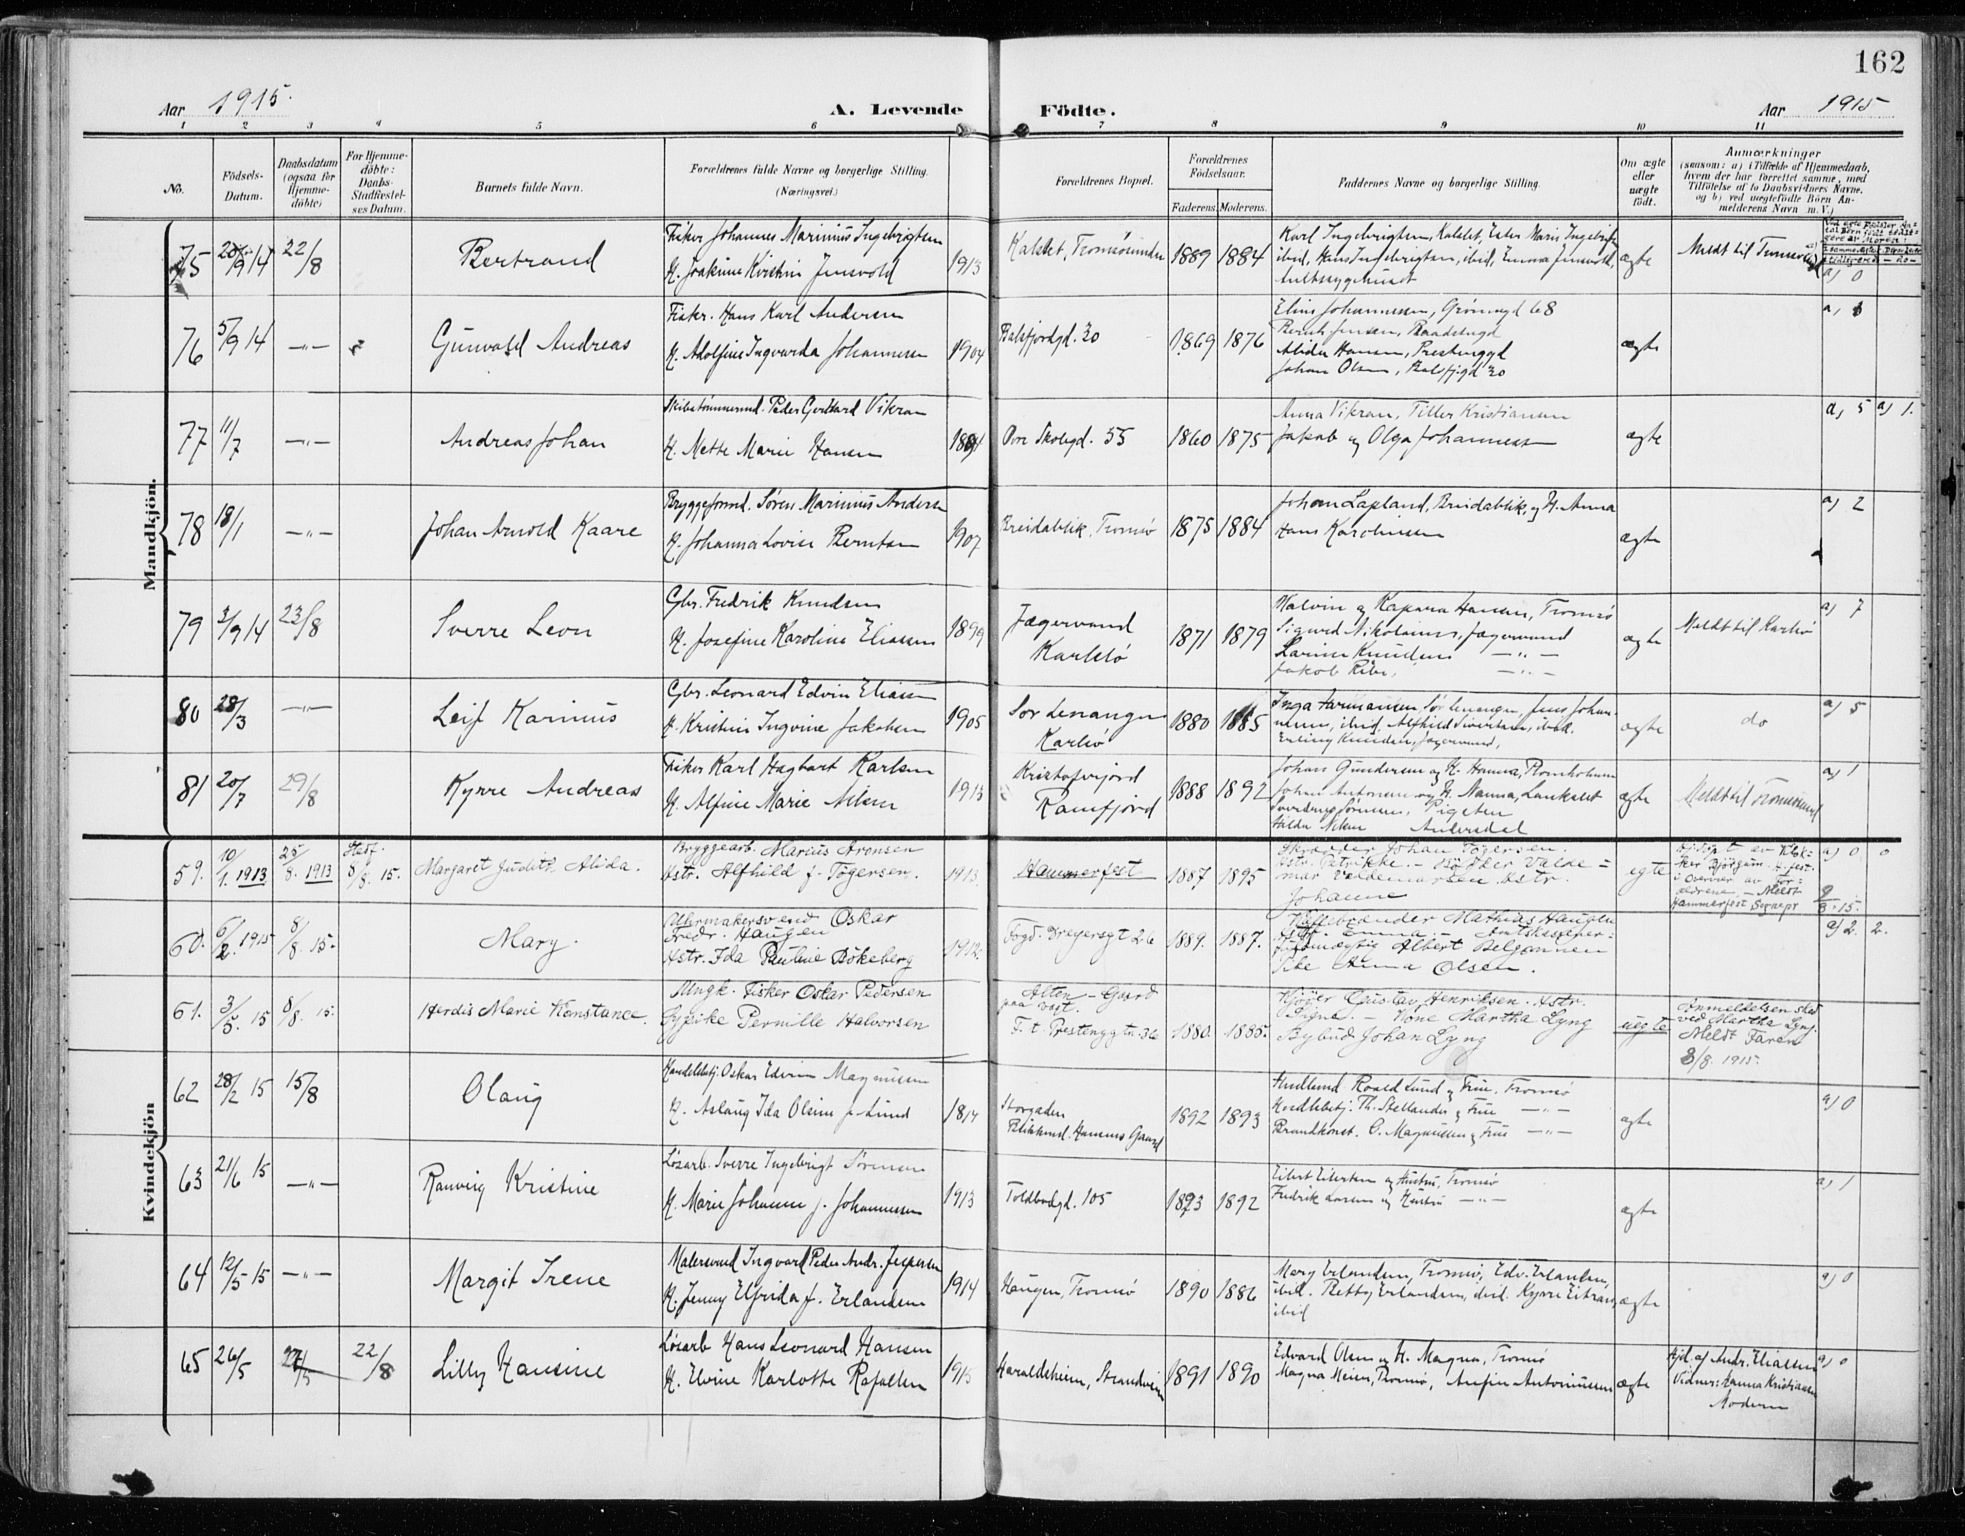 162
Aar 1915.
A. Levende Födte.
Aar 1915
1 2 3 4 5 6 7 8 9 10 11
No.
Födsels-Datum.
Daabsdatum (ogsaa for Hjemme-döbte)
For Hjemme-döbte: Daabs-Stadfæstel-ses Datum.
Barnets fulde Navn.
Forældrenes fulde Navne og borgerlige Stilling. (Næringsvei.)
Forældrenes Bopæl.
Forældrenes Födselsaar.
Faderens. Moderens.
Faddernes Navne og borgerlige Stilling.
Om ægte eller uægte födt.
Anmærkninger
(saasom: a) i Tilfælde af Hjemmedaab,
hvem der har forrettet samme, med
Tilföielse af to Daabsvidners Navne,
og b) ved uægtefödte Börn An-
melderens Navn m. V.)
Mandkjön.
75 9/14 22/8 Bertrand
Fisker Johannes Marinius Ingebrigtsen
H. Joakime Kirstine Jensvold
1913 Kaldslet, Tromsösundet 1889 1884
Karl Ingebrigtsen, Kaldslet, Ester Marie Ingebrigtsen
ibid, Hans Ingebrigtsen, ibid, Emma Jensvold,
Amtssygehuset
ægte Meldt til Tromsösund a) 0
76 5/9 14 —"— Gunvald Andreas
Fisker. Hans Karl Andersen
H. Adolfine Ingvarda Johannesen
1904 Balsfjordgd. 30 1869 1876
Elins Johannesen, Grönnegd 68
Bernt Jensen, Raadstugd
Alida Hansen, Prestenggd
Johan Olsen, Balsfjgd 30
ægte
77 11/7 —"— Andreas Johan
Skibstömmermd. Peder Gerhard Vikran
H. Mette Marie Hansen
Övre Skolegd. 55 1860 1875
Anna Vikran, Tiller Kristiansen
Jakob og Olga Johannessen
ægte a) 5 a) 1.
78 18/1 —"— Johan Arnold Kaare
Bryggeformd. Sören Marinius Andersen
H. Johanna Lovise Berntsen
1907 Breidablik, Tromsö 1875 1884
Johan Lapland, Breidablik, og H. Anna
Hans Karolinesen
ægte a) 2
79 3/9 14 23/8 Sverre Leon
Gbr. Fredrik Knudsen
H. Josefine Karoline Eliassen
1899 Jægervand Karlsö 1871 1879
Halvin og Kapara Hansen, Tromsö
Sigurd Nikolaisen, Jægervand
Larine Knudsen —"—
Jakob Ribe, —"—
ægte Meldt til Karlsö a) 7
80 28/3 —"— Leif Karinius
Gbr. Leonard Edvin Eliassen
H. Kristine Ingvine Jakobsen
1905 Sör Lenangen Karlsö 1880 1885
Inga Hermansen, Sör Lenangen, Jens Johan-
nesen, ibid, Alfhild Sivertsen, ibid.
Erling Knudsen, Jægervand,
ægte do a) 5
81 20/7 29/8 Kyrre Andreas
Fisker Karl Hagbart Karlsen
H. Alfine Marie Nilsen
1913 Kristoferjord Ramfjord 1888 1892
Johan Gundersen og H. Hanna, Stornholmen
Johan Antonsen og H. Nanna, Lankslet
Sverdrup Sörensen, Pigsten
Hilda Nilsen Andersdal
ægte Meldt til Tromsösund a) 1
Kvindekjön
59. 10/1. 1913 25/8. 1913 Stadf. 8/8. 15. Margaret Judith Alida.
Bryggearb. Marius Aronsen
Hstr. Alfhild f. Tögersen.
1913. Hammerfest 1887 1895
Skrædder Johan Tögersen.
Hstr. Petrikke. — Bödker Valde=
mar Valdemarsen. Hstr.
Johanne
egte
Hj.döpt av Klok-
ker Björgum H.fest
i Overvær av For=
ældrene, — Meldt
Hammerfest Sognepr
8/8. 15.
a) 0 0
60. 6/2. 1915 8/8. 15. Mary.
Uhrmakersvend Oskar
Fredr. Haugen
Hstr. Ida Pauline Bökeberg
1912. Fogd. Dreyersgt 26 1889. 1887.
Kaffebrænder Mathias Haugen
Hstr. Emma — Amtskasserer-
fuldmægtig Albert Beljonnen
Pike Anna Olsen.
a) 2. 2.
61. 3/5. 15 8/8. 15. Herdis Marie Konstance.
Ungk. Fisker Oskar Pedersen
Pike Pernille Halvorsen
Alten — Gaard
paa vest.
F. t. Prestenggtn. 36 1880. 1885.
Kjöger Gustav Henriksen. Hstr.
Signe. — Kone Martha Lyng
Bybud Johan Lyng
uegte
Anmeldelsen sked
ved Martha Lyng.
Meldt Faren
8/8. 1915.
62 28/2 15 15/8 Olaug
Handelsbetj. Oskar Edvin Magnusen
H. Aslaug Ida Olsine f. Lund
1814 Storgaden Blikkensl. Hansens Gaard 1892 1893
Hndlsmd. Roald Lund og Frue. Tromsö
Handlsbetj. Th. Stellander og Frue —"—
Brandkonst. O. Magnussen og Frue —"—
ægte a) 0
63 21/6 15 —"— Ranveig Kristine
Lösarb. Sverre Ingebrigt Sörensen
H. Marie Johanne f. Johannessen
1913 Toldbodgd. 105 1893 1892
Eilert Eilertsen og Hustru, Tromsö
Fredrik Larsen og Hustru —"—
ægte a) 1
64 12/5 15 —"— Margit Irene
Malersvend Ingvard Peder Andr. Jespersen
H. Jenny Elfrida f. Erlandsen
1914 Haugen, Tromsö 1890 1886
Mary Erlandsen, Tromsö, Edv. Erlandsen,
ibid. Betty Erlandsen, ibid. Kyrre Eitran,
ibid
ægte a) 0
65 26/5 27/5 22/8 Lilly Hansine
Lösarb Hans Leonard Hansen
H. Elvine Karlotte Rafaelsen
1915 Haraldsheim, Strandveien 1891 1890
Edvard Olsen og H. Magna, Tromsö
Magna Meier, Tromsö, Anfin Antoniussen
ægte
Hjd. af Andr. Eliassen
Vidner: Hanna Kristiansen
Moderen
a) 0